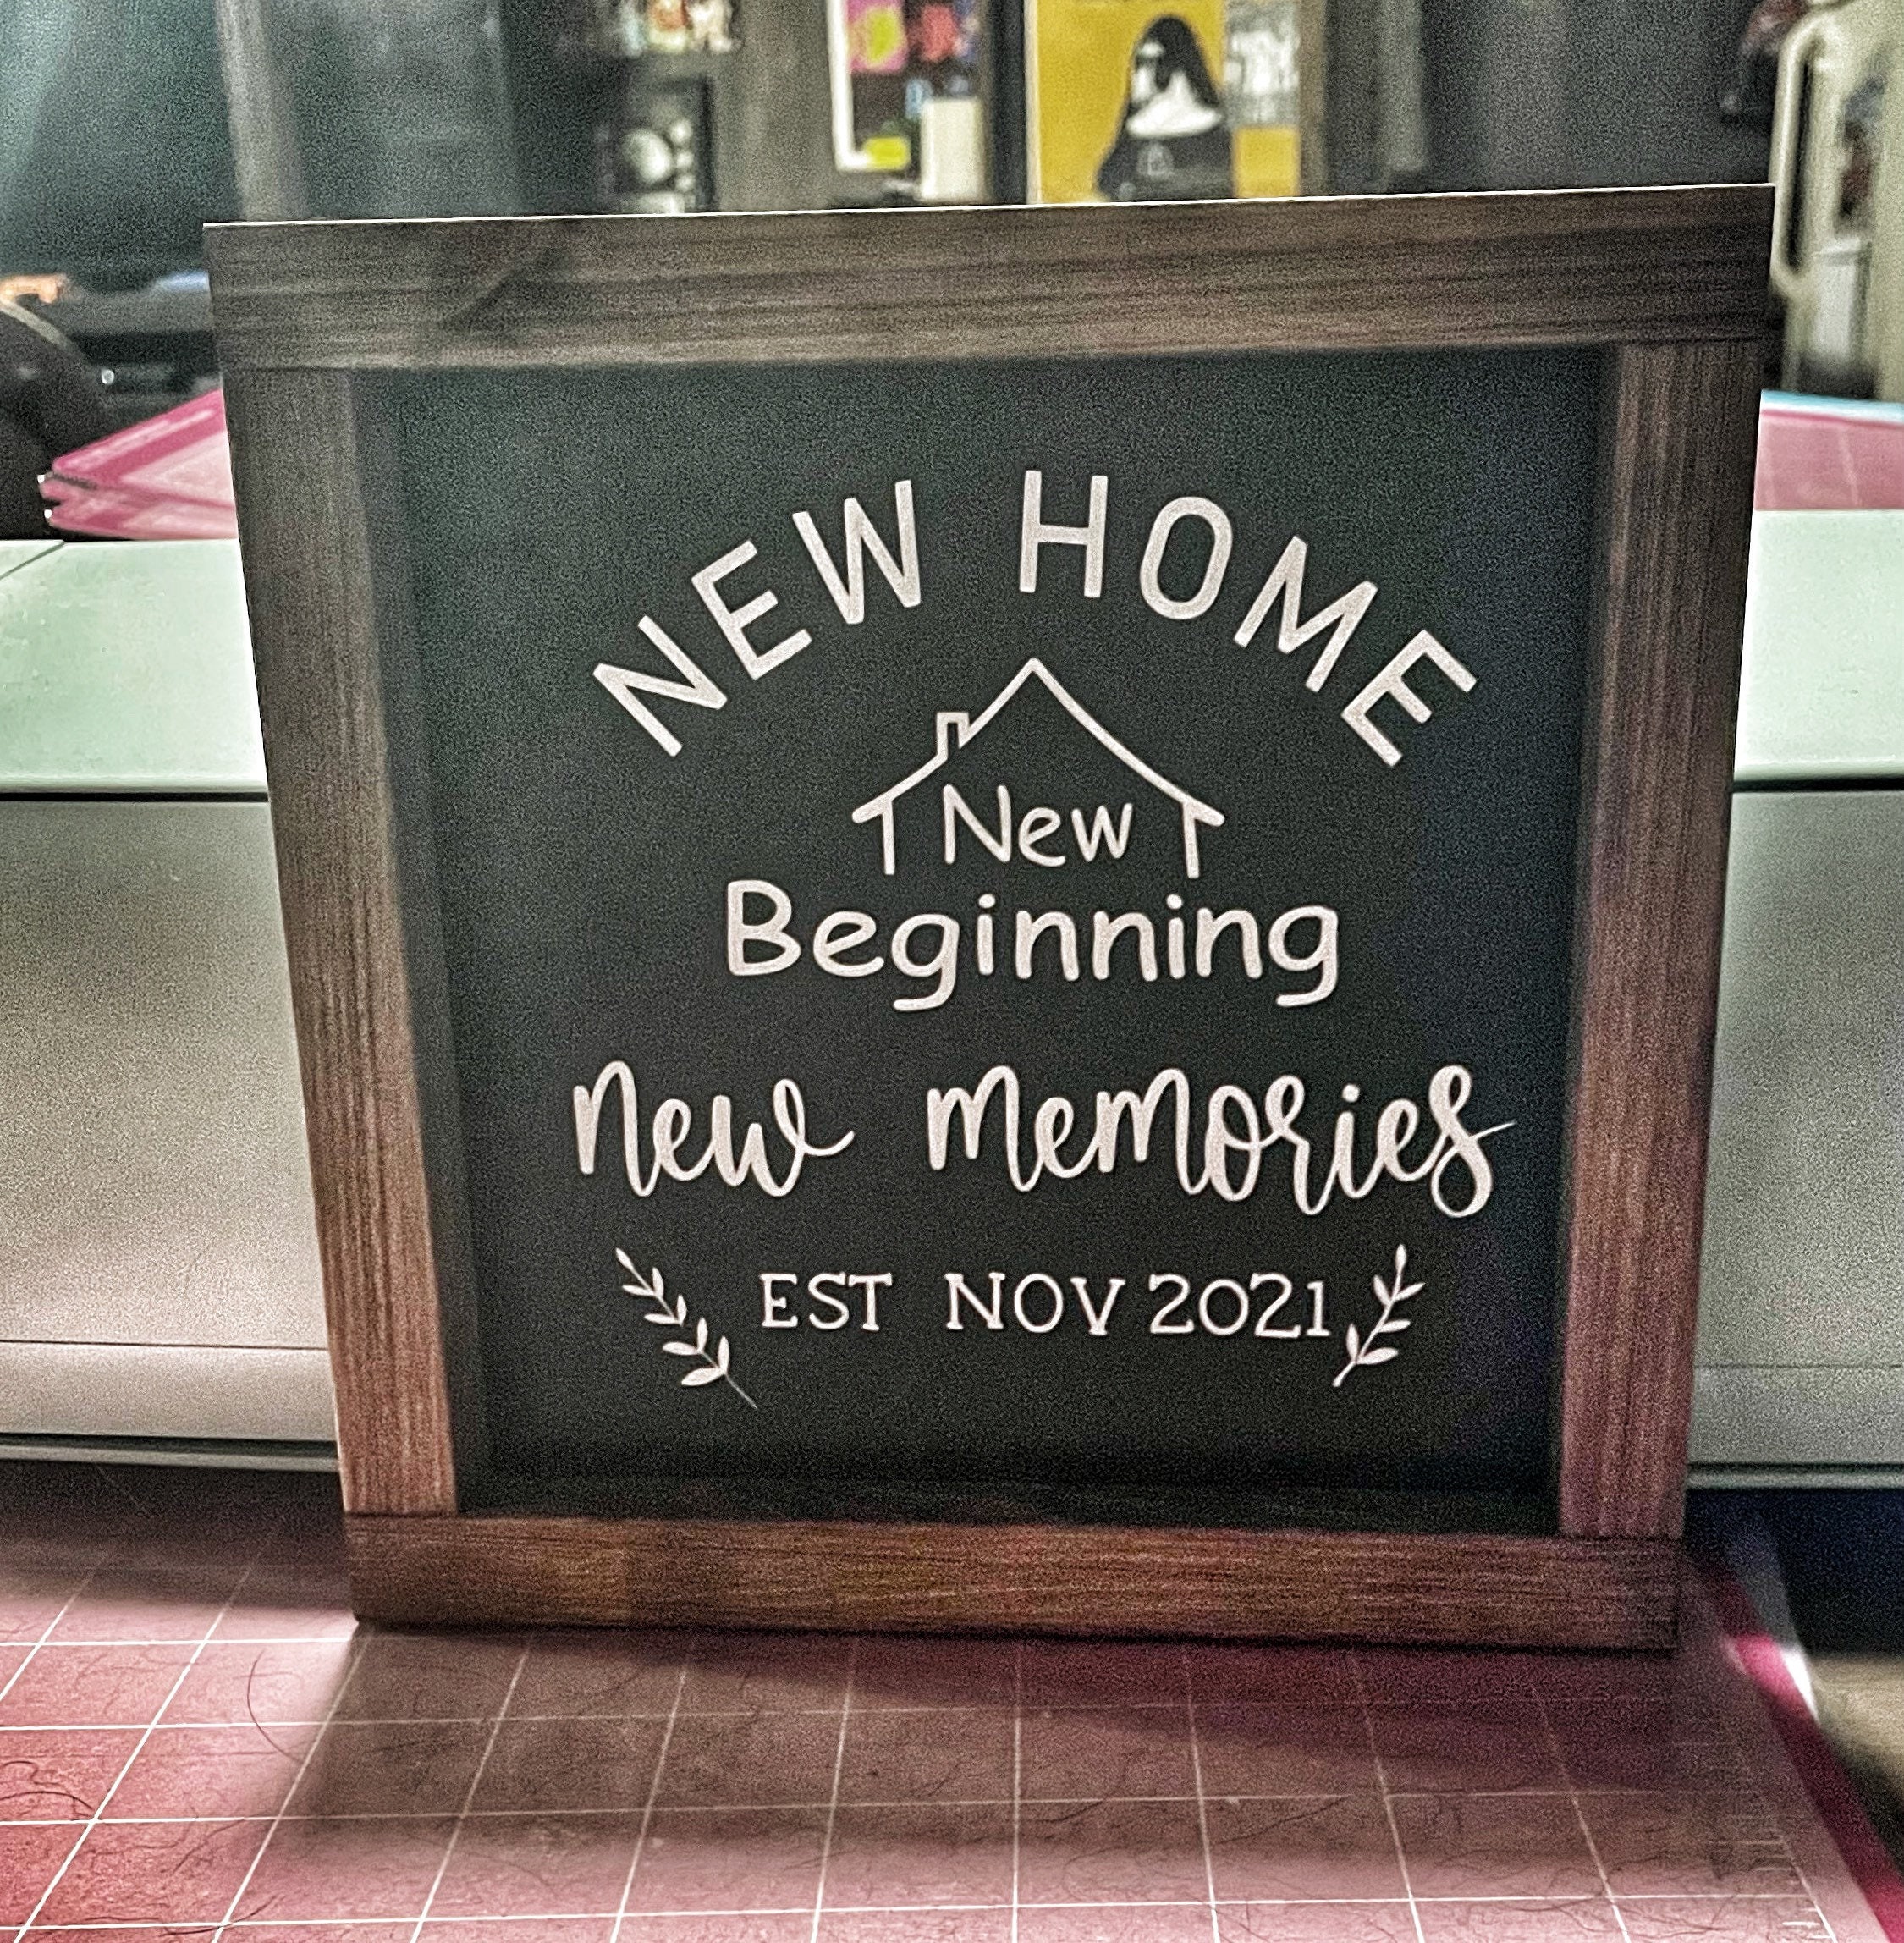 NEW HOME
New
Beginning
new memories
EST NOV 2021